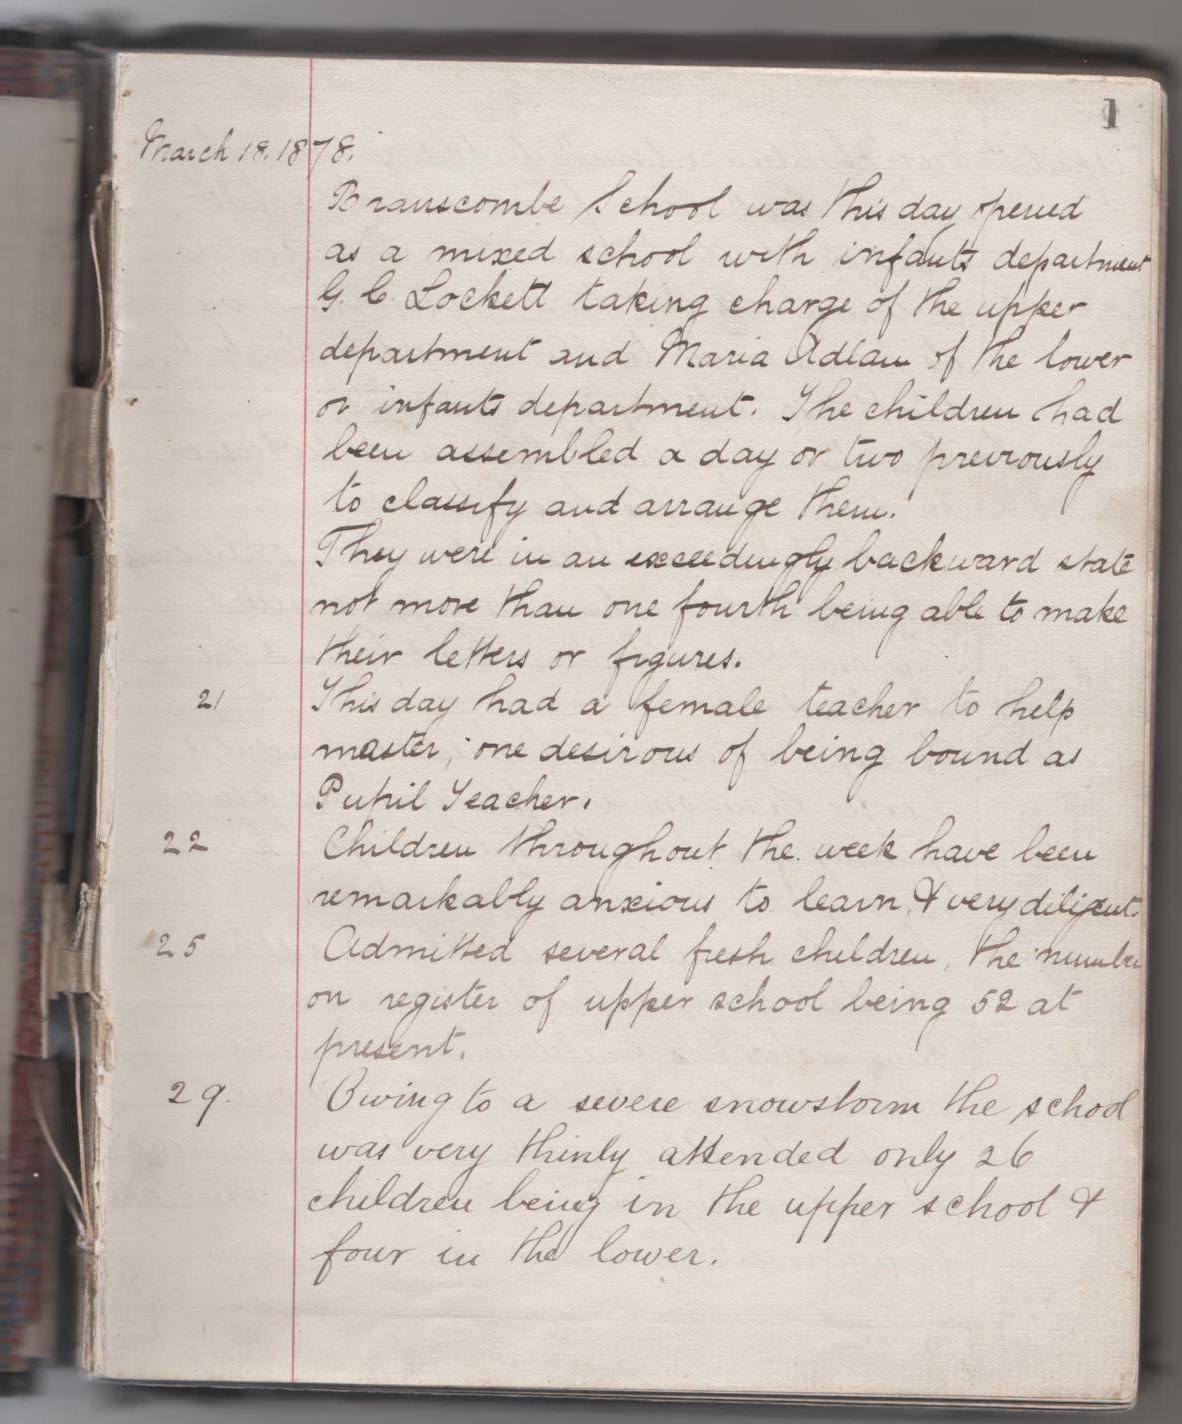 1
March 18. 1878.
Branscombe School was this day opened
as a mixed school with infants department
G. C. Lockett taking charge of the upper
department and Maria Adlam of the lower
or infants department. The children had
been assembled a day or two previously
to classify and arrange them.
They were in an exceedingly backward state
not more than one fourth being able to make
their letters or figures.
21 This day had a female teacher to help
master, one desirous of being bound as
Pupil Teacher.
22 Children throughout the week have been
remarkably anxious to learn & very diligent.
25 Admitted several fresh children, the number
on register of upper school being 52 at
present.
29. Owing to a severe snowstorm the school
was very thinly attended only 26
children being in the upper school &
four in the lower.